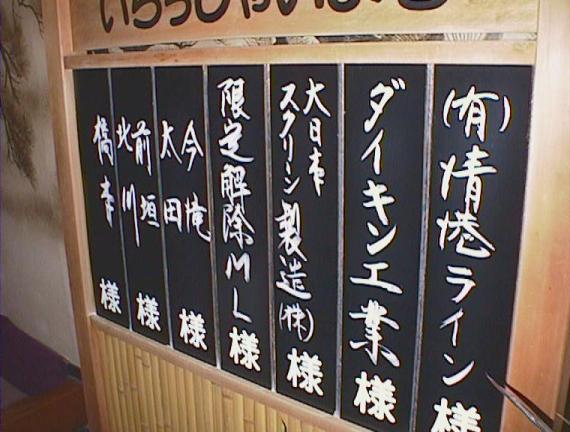 いらっしゃいませ
(有)清港ライン様
ダイキン工業様
大日本
スクリン製造(株)様
限定解除ML様
今滝
太田様
前垣
北川様
橋本様